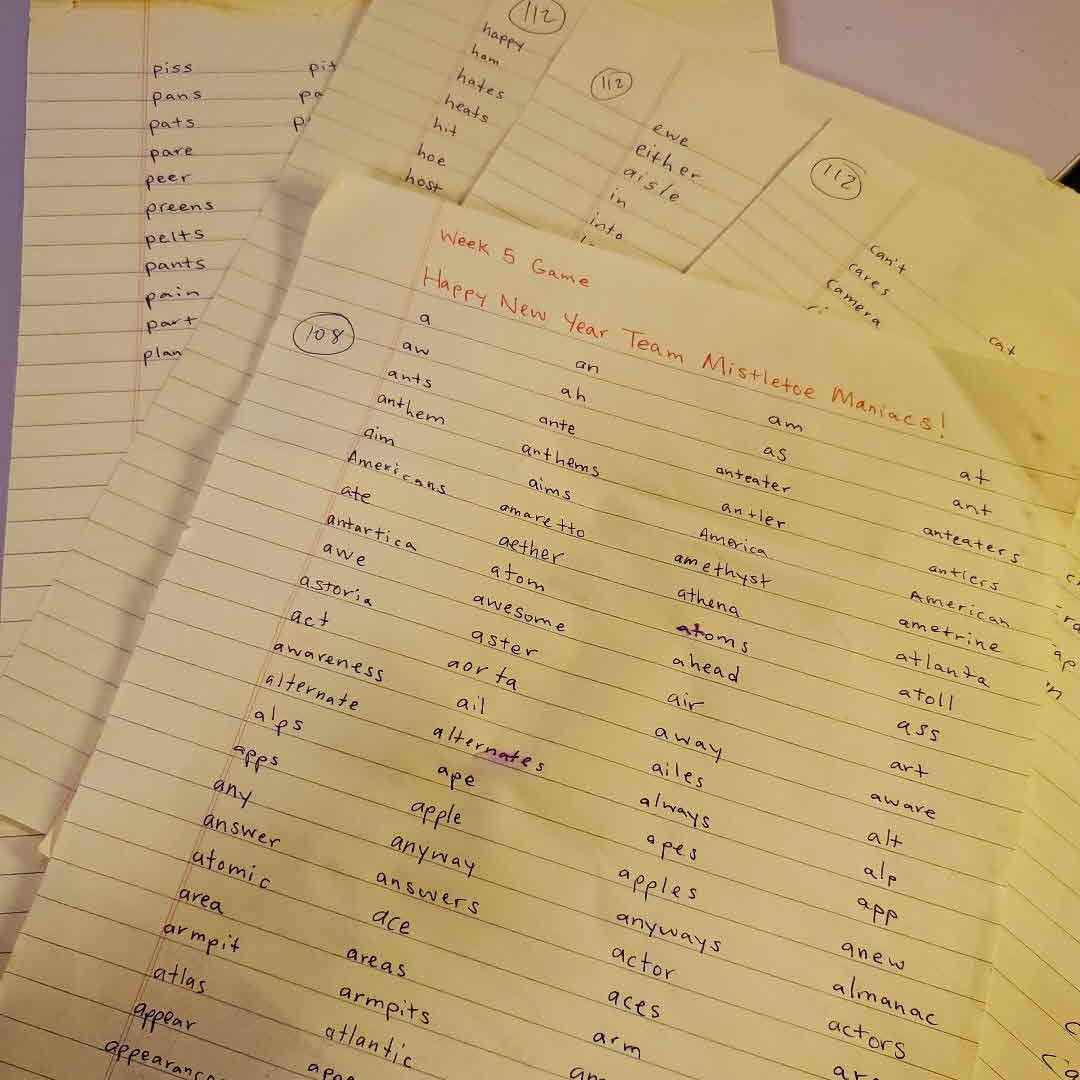 piss pit
pans pa
pats p
pare
peer
preens
pelts
pants
pain
part
plan
112
happy
ham
hates
heats
hit
hoe
host
112
ewe
either
aisle
in
into
112
can't
cares
camera
cat
Week 5 Game
Happy New Year Team Mistletoe Maniacs!
108
a an am at
aw ah as ant
ants ante anteater anteaters
anthem anthems antler antlers
aim aims America American
Americans amaretto amethyst ametrine
ate aether athena atlanta
antartica atom atoms atoll
awe awesome ahead ass
astoria aster air art
act aorta away aware
awareness ail ailes alt
alternate alternates always alp
alps ape apes app
apps apple apples anew
any anyway anyways almanac
answer answers actor actors
atomic ace aces
area areas arm
armpit armpits
atlas atlantic
appear
appearanc